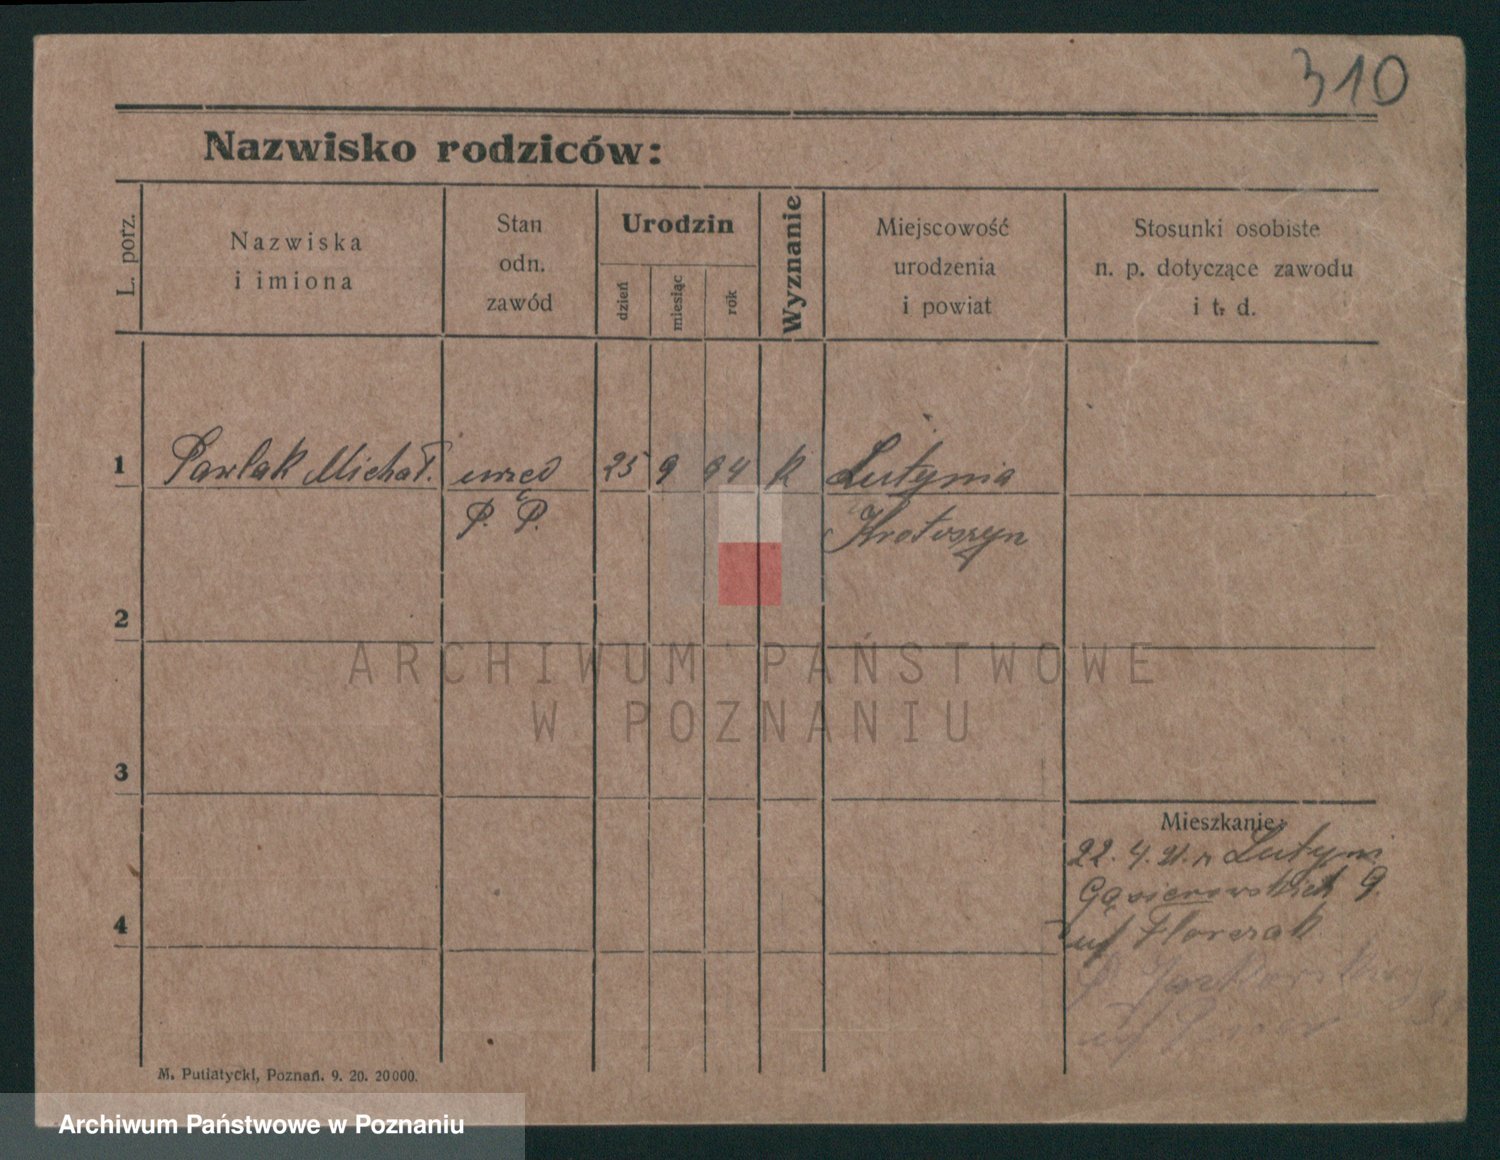 310
Nazwisko rodziców:
L. porz.
Nazwiska
i imiona
Stan
odn.
zawód
Urodzin
dzień
miesiąc
rok
Wyznanie
Miejscowość
urodzenia
i powiat
Stosunki osobiste
n. p. dotyczące zawodu
i t. d.
1 Pawlak Michał. 25 9 94 k Lutynia
P. P. Krotoszyn
2
ARCHIWUM PAŃSTWOWE
W POZNANIU
3
Mieszkanie:
22. 4. 21. Lutyni
Gąsiorowskich 9.
4
Florczak
M. Putiatycki, Poznań. 9. 20. 20000.
Archiwum Państwowe w Poznaniu